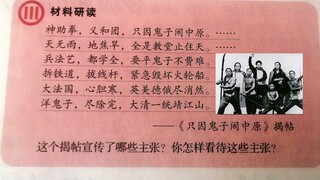 III 材料研读
神助拳，义和团，只因鬼子闹中原。……
天无雨，地焦旱，全是教堂止住天。……
兵法艺，都学全，要平鬼子不费难。
拆铁道，拔线杆，紧急毁坏火轮船。
大法国，心胆寒，英美德俄尽消然。
洋鬼子，尽除完，大清一统靖江山。
——《只因鬼子闹中原》揭帖
这个揭帖宣传了哪些主张？你怎样看待这些主张？